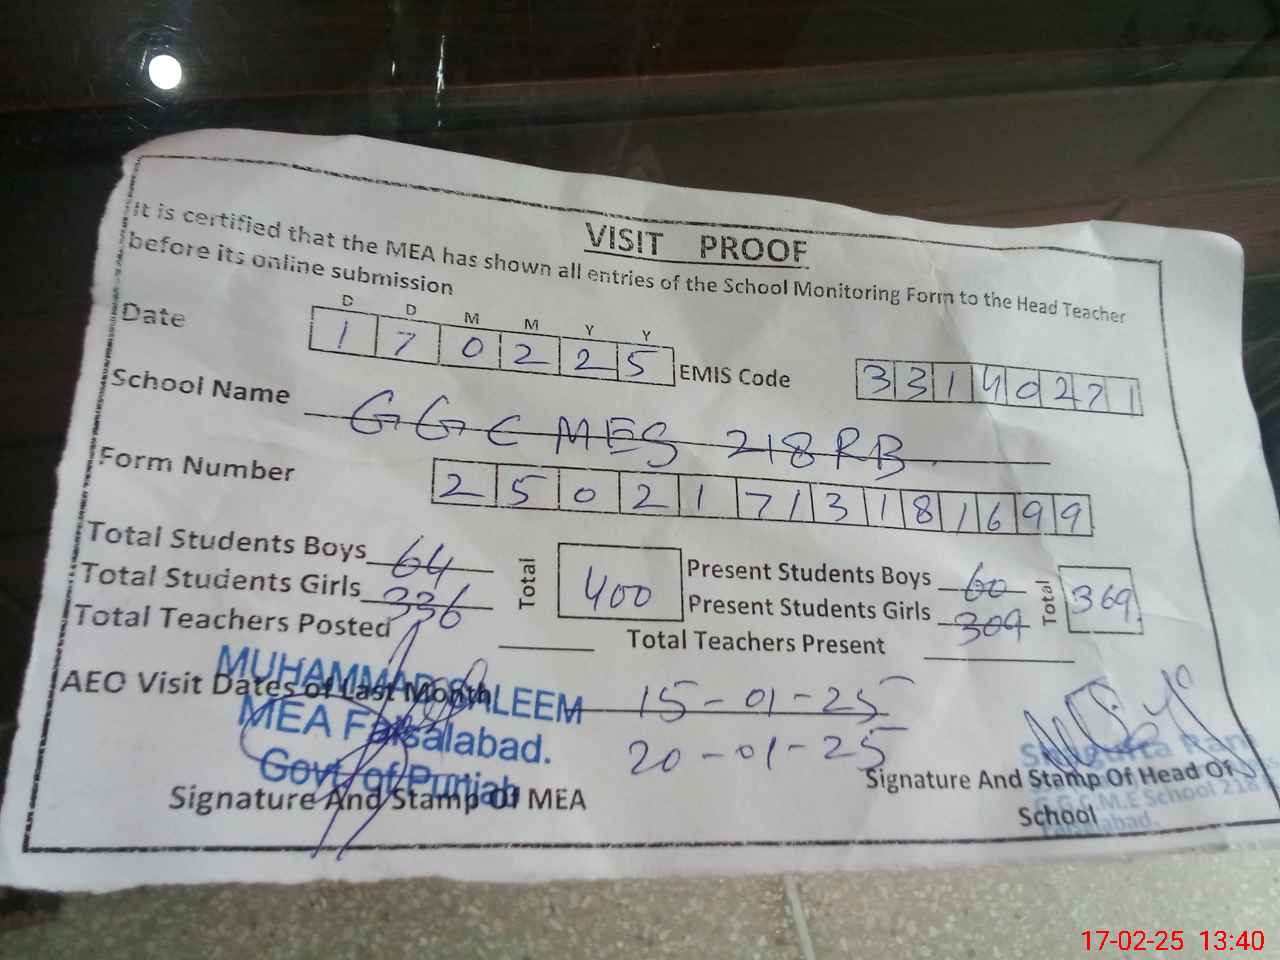 VISIT PROOF
It is certified that the MEA has shown all entries of the School Monitoring Form to the Head Teacher
before its online submission
D D M M Y Y
Date 1 7 0 2 2 5 EMIS Code 3 3 1 4 0 2 7 1
School Name GGCMES 218RB
Form Number 2 5 0 2 1 7 1 3 1 8 1 6 9 9
Total Students Boys 64 Total 400 Present Students Boys 60 Total 369
Total Students Girls 336 Present Students Girls 309
Total Teachers Posted Total Teachers Present
AEO Visit Dates of Last Month 15-01-25
20-01-25
MUHAMMAD SALEEM
MEA Faisalabad.
Govt. of Punjab
Signature And Stamp Of MEA
Signature And Stamp Of Head Of
School
G.G.C.M.E School 218
Faisalabad.
17-02-25 13:40